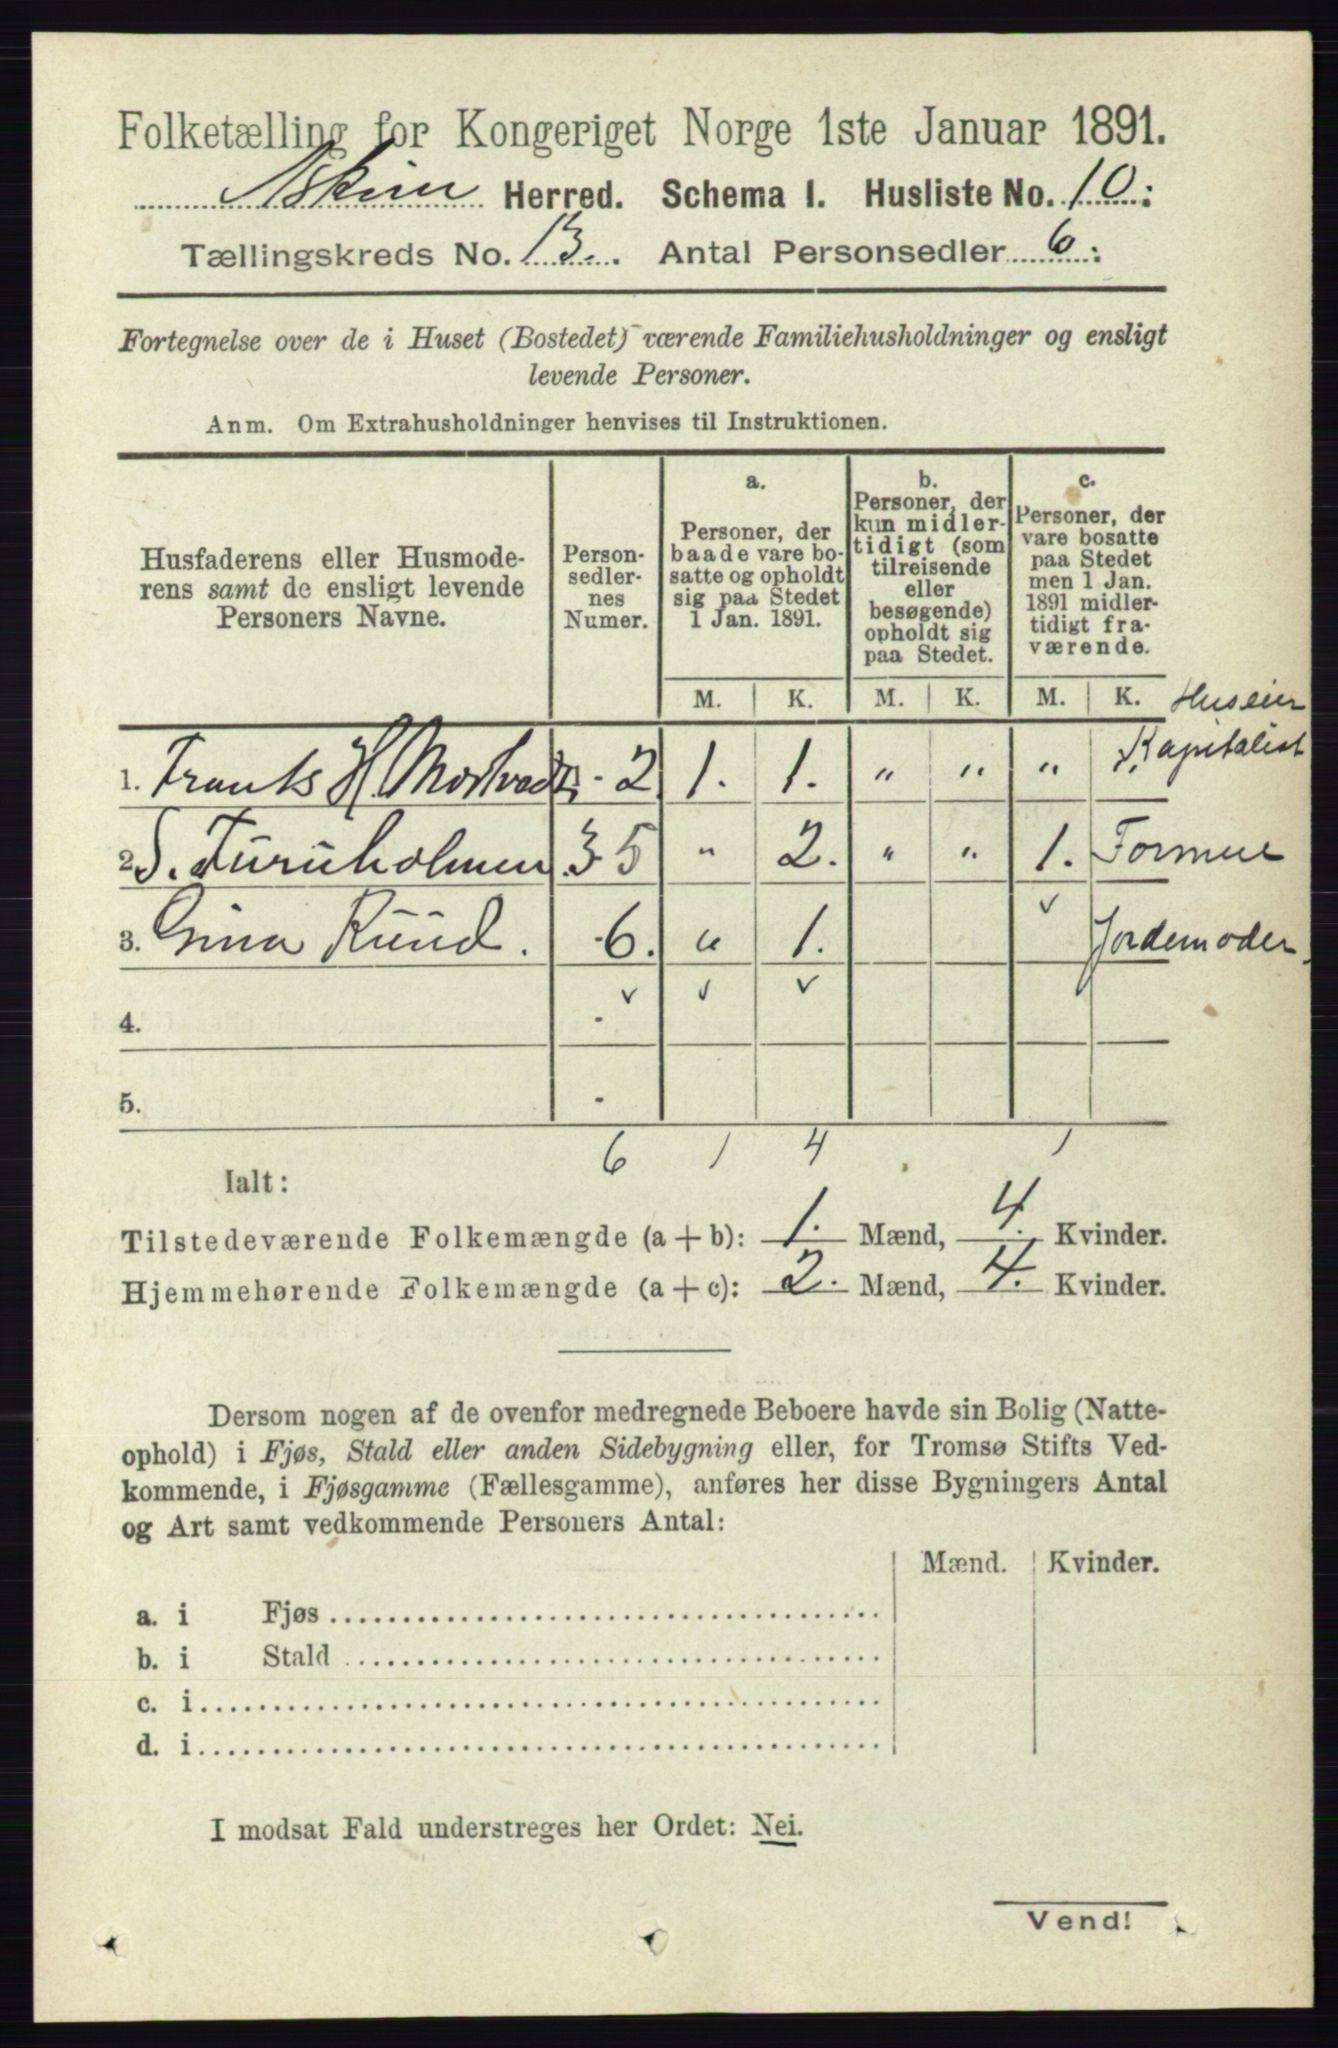 Folketælling for Kongeriget Norge 1ste Januar 1891.
Askim Herred. Schema I. Husliste No. 10.
Tællingskreds No. 13. Antal Personsedler 6.
Fortegnelse over de i Huset (Bostedet) værende Familiehusholdninger og ensligt
levende Personer.
Anm. Om Extrahusholdninger henvises til Instruktionen.
Husfaderens eller Husmode-
rens samt de ensligt levende
Personers Navne.
Person-
sedler-
nes
Numer.
a.
Personer, der
baade vare bo-
satte og opholdt
sig paa Stedet
1 Jan. 1891.
b.
Personer, der
kun midler-
tidigt (som
tilreisende
eller
besøgende)
opholdt sig
paa Stedet.
c.
Personer, der
vare bosatte
paa Stedet
men 1 Jan.
1891 midler-
tidigt fra-
værende.
M. K. M. K. M. K. Huseier
1. Frants H. - 2 1. 1. " " " " Kapitalist
2. S. Furuholmen 3-5 " 2. " " 1. Formue
3. Gina Ruud. - 6. " 1. Jordemoder.
4. -
5. -
6 1 4 1
Ialt:
Tilstedeværende Folkemængde (a + b): 1. Mænd, 4. Kvinder.
Hjemmehørende Folkemængde (a + c): 2. Mænd, 4. Kvinder.
Dersom nogen af de ovenfor medregnede Beboere havde sin Bolig (Natte-
ophold) i Fjøs, Stald eller anden Sidebygning eller, for Tromsø Stifts Ved-
kommende, i Fjøsgamme (Fællesgamme), anføres her disse Bygningers Antal
og Art samt vedkommende Personers Antal:
Mænd. Kvinder.
a. i Fjøs
b. i Stald
c. i
d. i
I modsat Fald understreges her Ordet: Nei.
Vend!